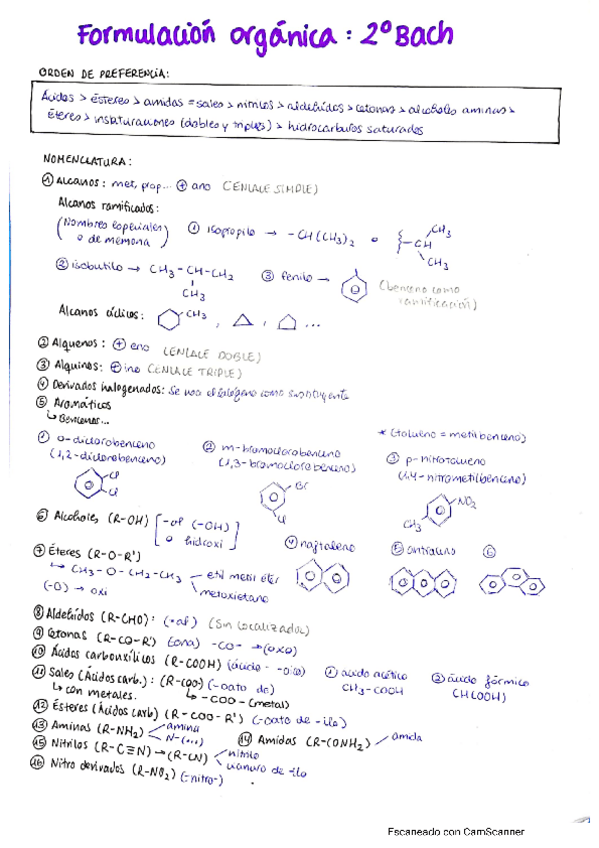 Formulación orgánica: 2º Bach
ORDEN DE PREFERENCIA:
Ácidos > ésteres > amidas = sales > nitrilos > aldehídos > cetonas > alcoholes aminas >
éteres > insaturaciones (dobles y triples) > hidrocarburos saturados
NOMENCLATURA:
① Alcanos: met, prop... ⊕ ano (ENLACE SIMPLE)
Alcanos ramificados:
(Nombres especiales o de memoria) ① isopropilo → -CH(CH3)2 o -CH CH3 CH3
② isobutilo → CH3-CH-CH2 CH3 ③ fenilo → (benceno como ramificación)
Alcanos cíclicos: CH3 , , ...
② Alquenos: ⊕ eno (ENLACE DOBLE)
③ Alquinos: ⊕ ino (ENLACE TRIPLE)
④ Derivados halogenados: Se usa el halógeno como sustituyente
⑤ Aromáticos
↳ Bencenos...
* (tolueno = metilbenceno)
① o-diclorobenceno ② m-bromoclorobenceno ③ p-nitrotolueno
(1,2-diclorobenceno) (1,3-bromoclorobenceno) (1,4-nitrometilbenceno)
Cl Cl Br Cl NO2 CH3
⑥ Alcoholes (R-OH) [-ol (-OH) o hidroxi]
④ naftaleno ⑤ antraceno ⑥
⑦ Éteres (R-O-R')
↳ CH3-O-CH2-CH3 etil metil éter
metoxietano
(-O) → oxi
⑧ Aldehídos (R-CHO): (-al) (Sin localizador)
⑨ Cetonas (R-CO-R') (ona) -CO- → (oxo)
⑩ Ácidos carboxílicos (R-COOH) (ácido - -oico) ① ácido acético CH3-COOH ② ácido fórmico CHCOOH)
⑪ Sales (Ácidos carb.): (R-COO-) (-oato de)
↳ con metales. ↳ -COO-(metal)
⑫ Ésteres (Ácidos carb) (R-COO-R') (-oato de -ilo)
⑬ Aminas (R-NH2) amina N-(...) ⑭ Amidas (R-CONH2) amida
⑮ Nitrilos (R-C≡N) → (R-CN) nitrilo cianuro de -ilo
⑯ Nitro derivados (R-NO2) (-nitro-)
Escaneado con CamScanner